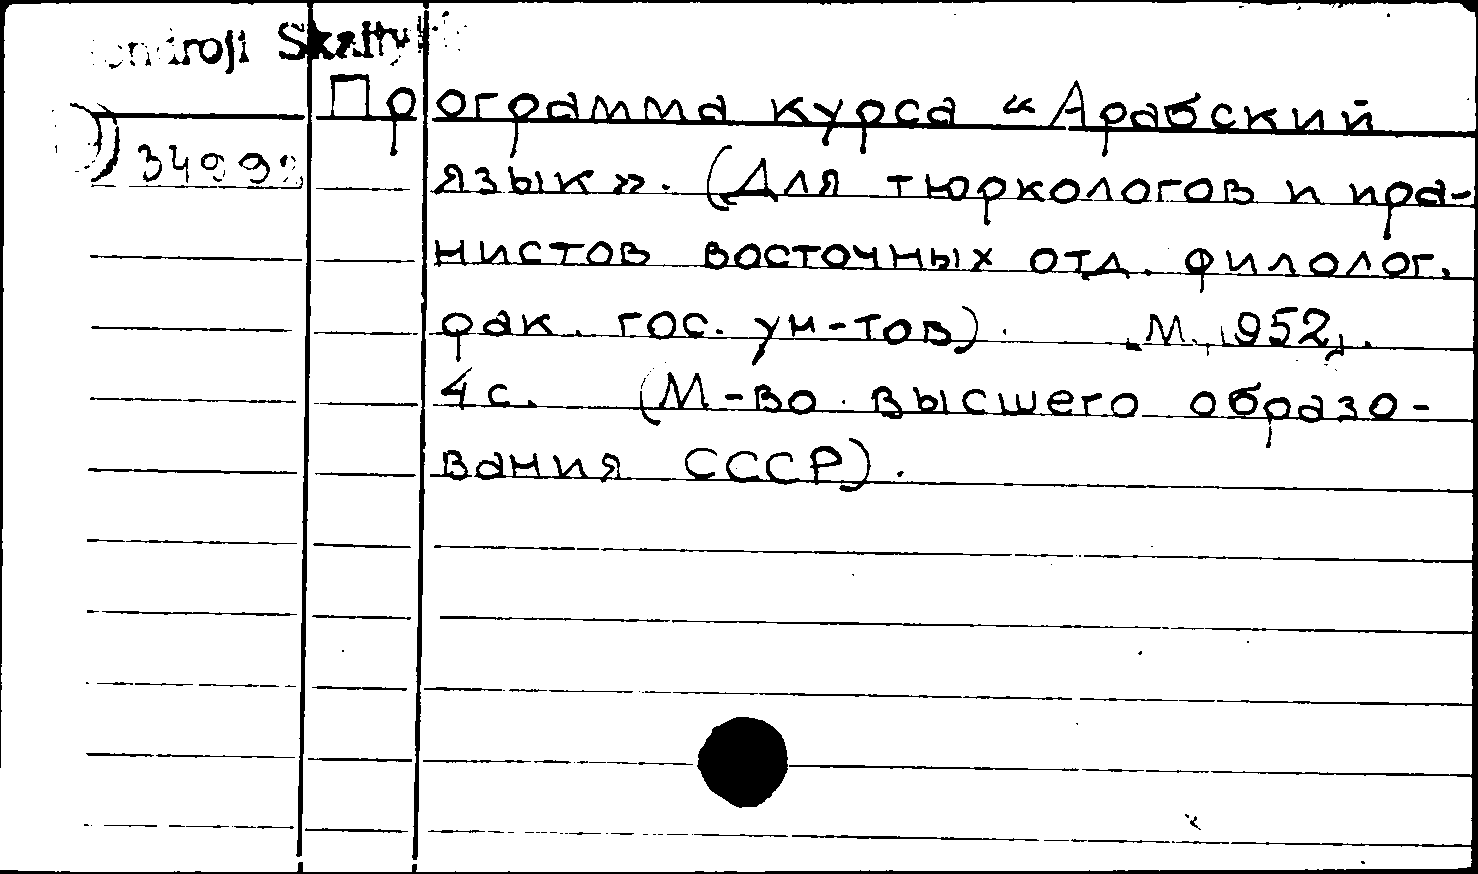 Skaityk
Программа курса “Арабский
34992
язык». (Для тюркологов и ира-
нистов восточных отд. филолог.
фак. гос. ун-тов). М., 1952,.
4 с. (М-во высшего образо-
вания СССР).